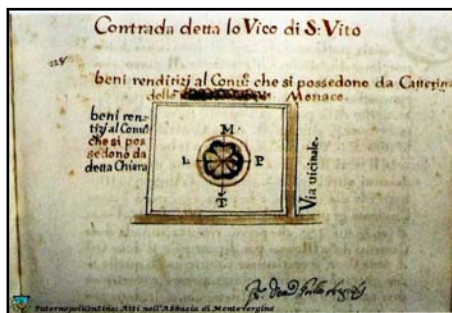 Contrada detta lo Vico di S: Vito
beni renditizj al Conto che si possedono da Catterina
della Monaco.
beni ren-
ditizj al Conto
che si pos
sedono da
detta Chiara
M
L P
T
Via uicinale.
PaternopoliOnline: Atti nell'Abbazia di Montevergine